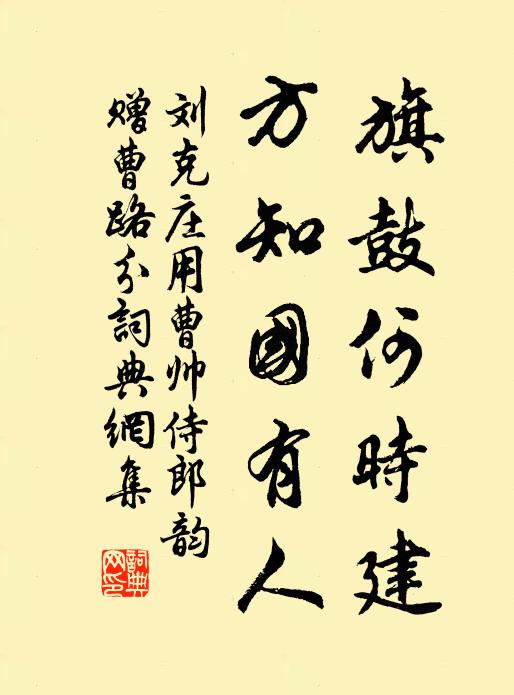 旗鼓何時建
方知國有人
刘克庄用曹帅侍郎韵
赠曹路分詞典網集
詞典
网印